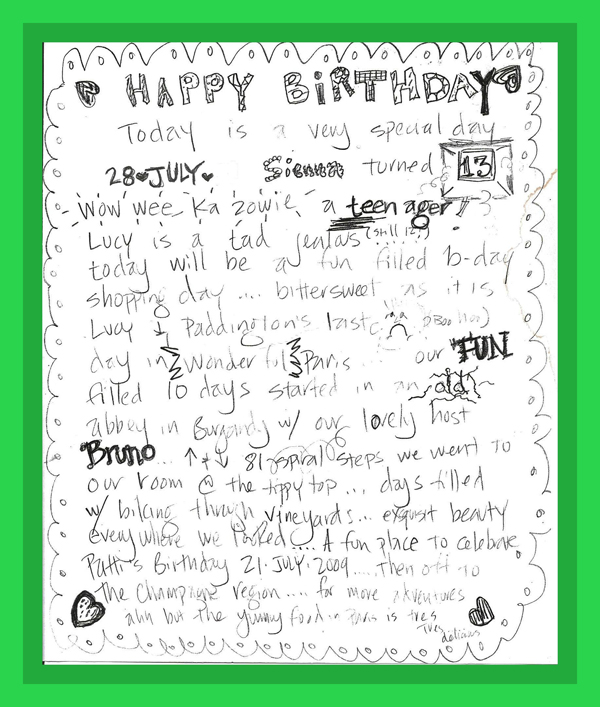 HAPPY BIRTHDAY
Today is a very special day
28 JULY Sienna turned 13
Wow wee Ka zowie, a teenager!
Lucy is a tad jealous (still 12!)
today will be a fun filled b-day
shopping day .... bittersweet as it is
Lucy & Paddington's last (Boo hoo)
day in Wonderful Paris ... our FUN
filled 10 days started in an old
abbey in Burgundy w/ our lovely host
Bruno ... ↑ + ↓ 81 spiral steps we went to
our room @ the tippy top ... days filled
w/ biking through vineyards ... exquisit beauty
everywhere we looked .... A fun place to celebrate
Patti's Birthday 21·JULY·2009 .... then off to
the Champagne region .... for more adventures
ahh but the yummy food in Paris is tres
Tres delicious